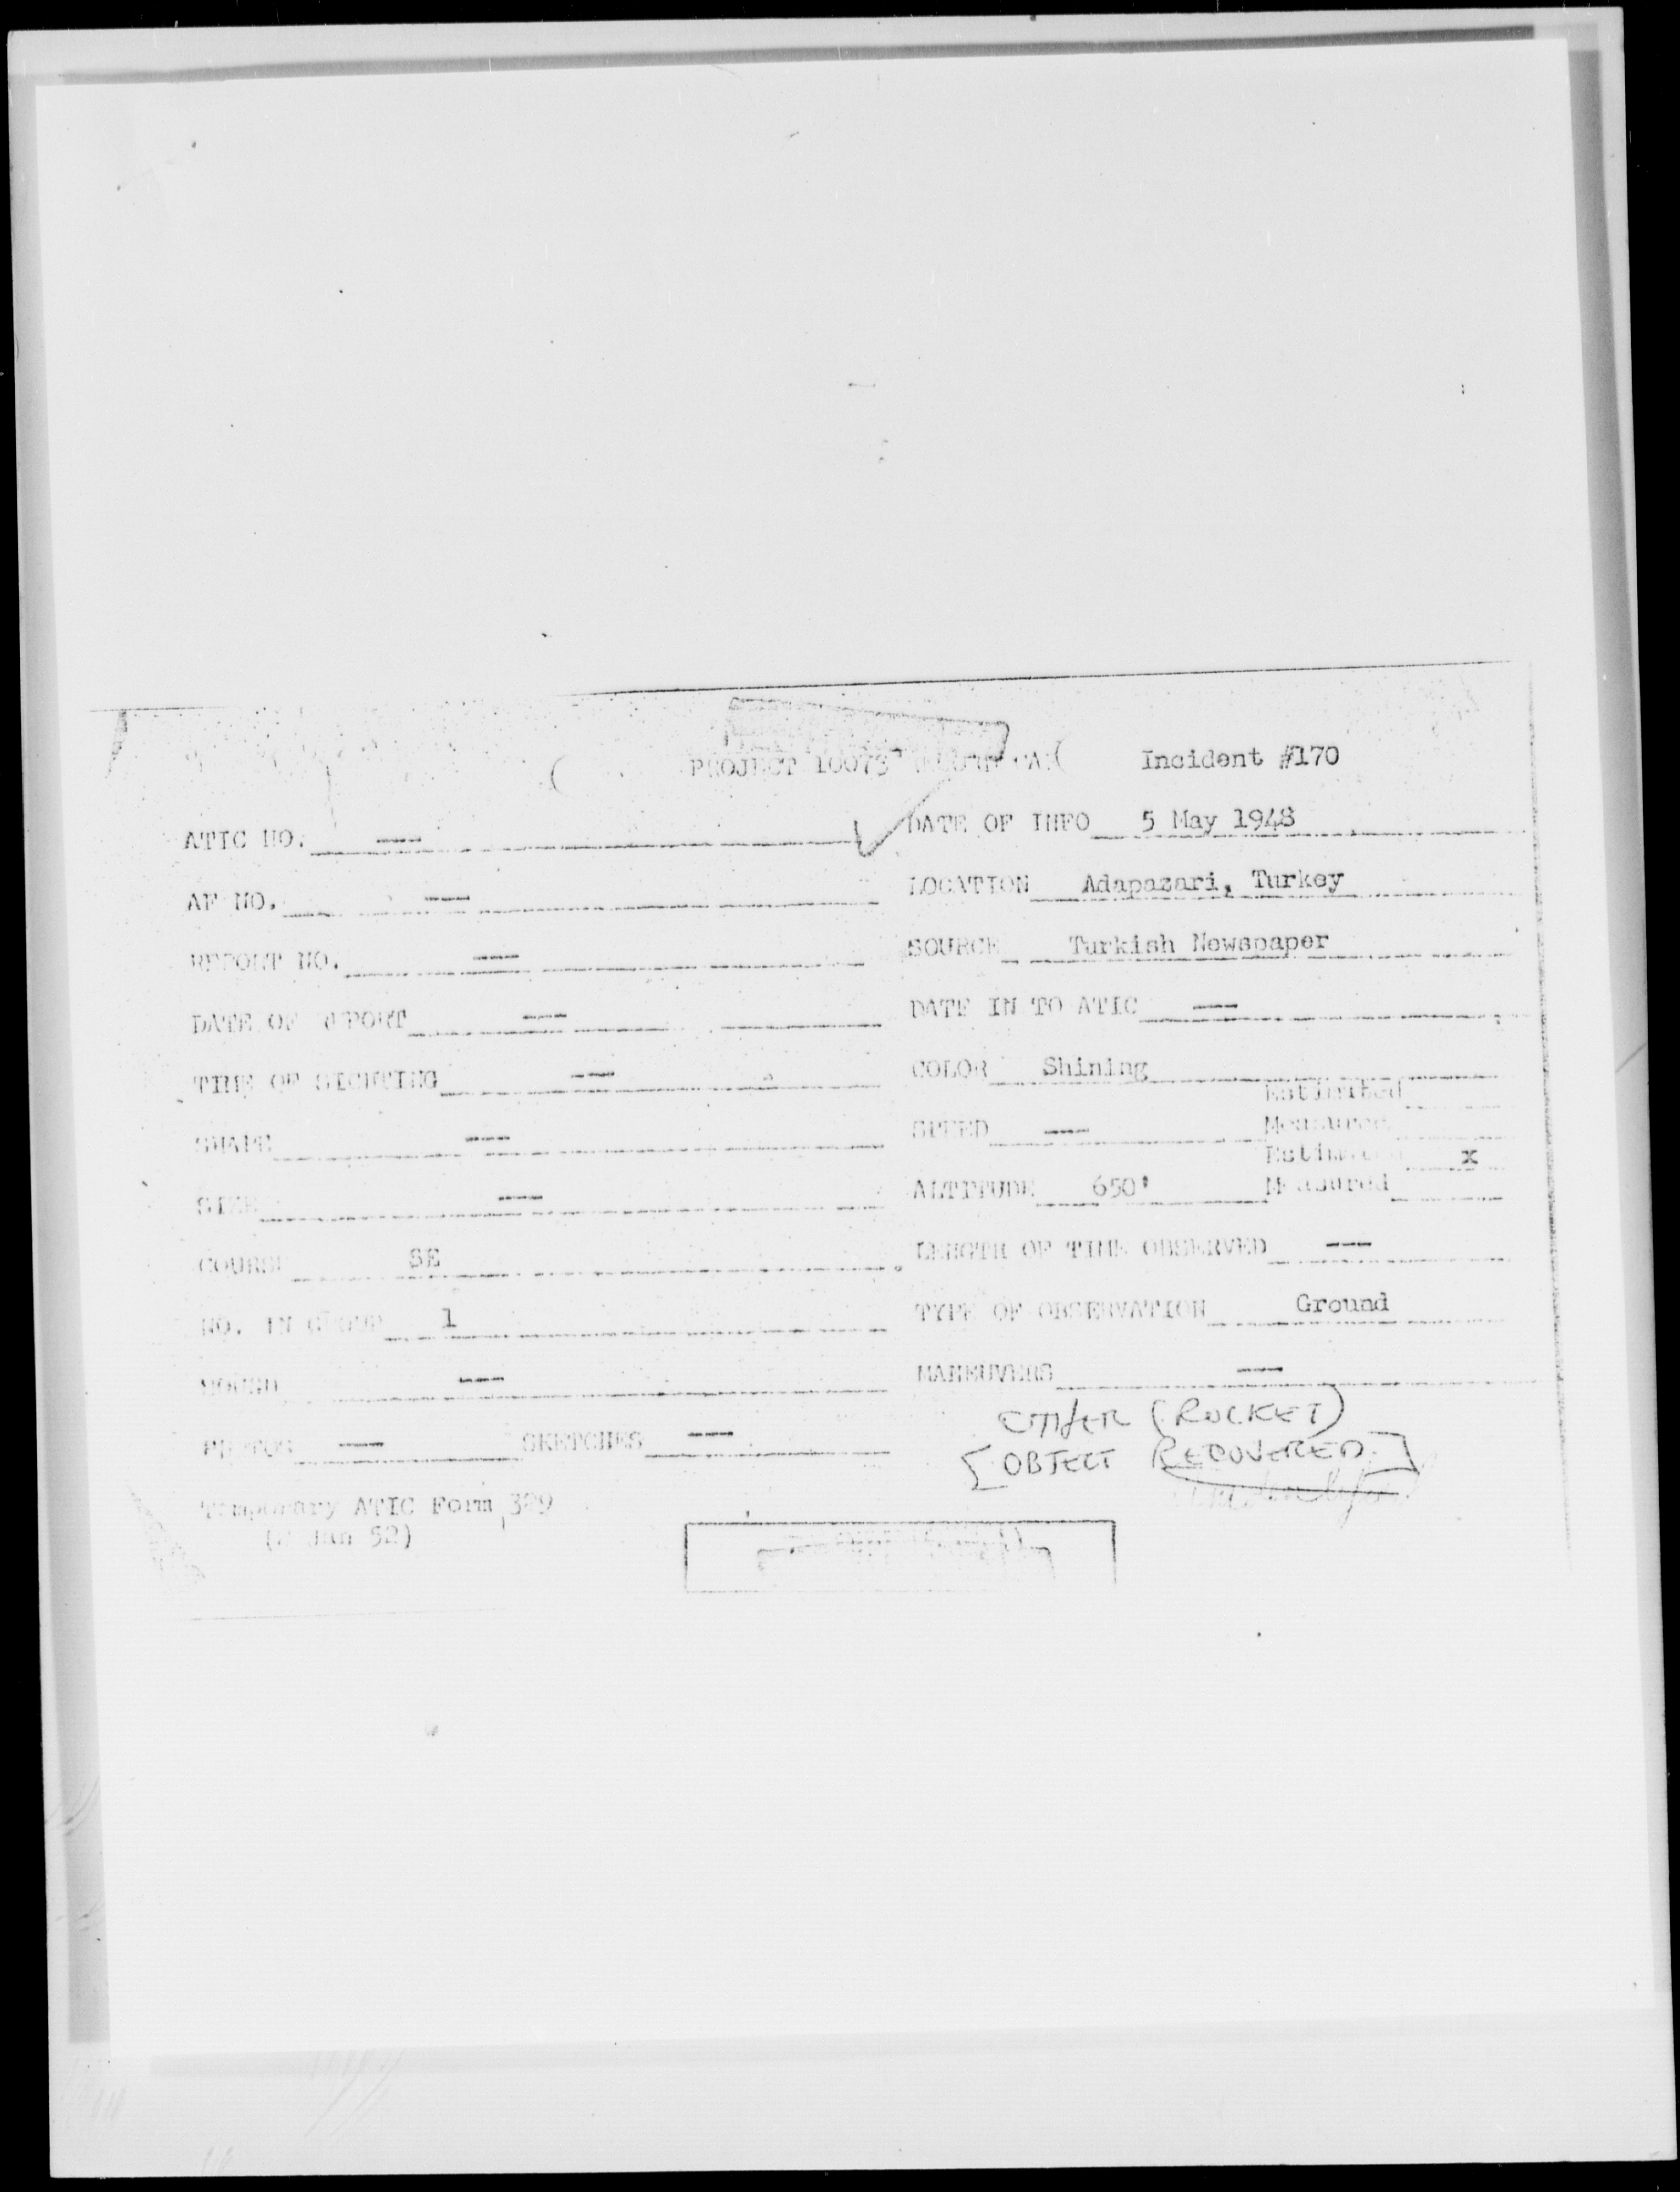 PROJECT 10073 Incident #170
ATIC NO. --- DATE OF INFO 5 May 1948
AF NO. --- LOCATION Adapazari, Turkey
REPORT NO. --- SOURCE Turkish Newspaper
DATE OF REPORT --- DATE IN TO ATIC ---
TIME OF SIGHTING --- COLOR Shining
Estimated
SHAPE --- SPEED --- Measured
Estimated x
SIZE --- ALTITUDE 650' Measured
COURSE SE LENGTH OF TIME OBSERVED ---
NO. IN GROUP 1 TYPE OF OBSERVATION Ground
SOUND --- MANEUVERS ---
OTHER (ROCKET)
PHOTOS --- SKETCHES --- [OBJECT RECOVERED.]
Temporary ATIC Form 329
Jan 52)